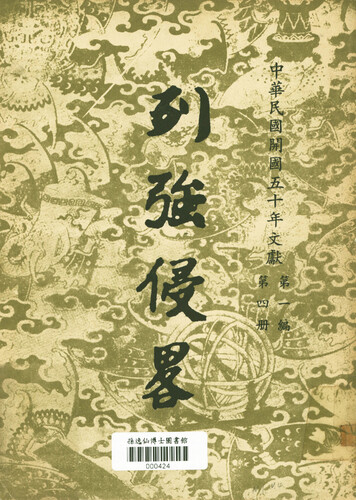 中華民國開國五十年文獻
第一編
第四册
列強侵畧
孫逸仙博士圖書館
000424